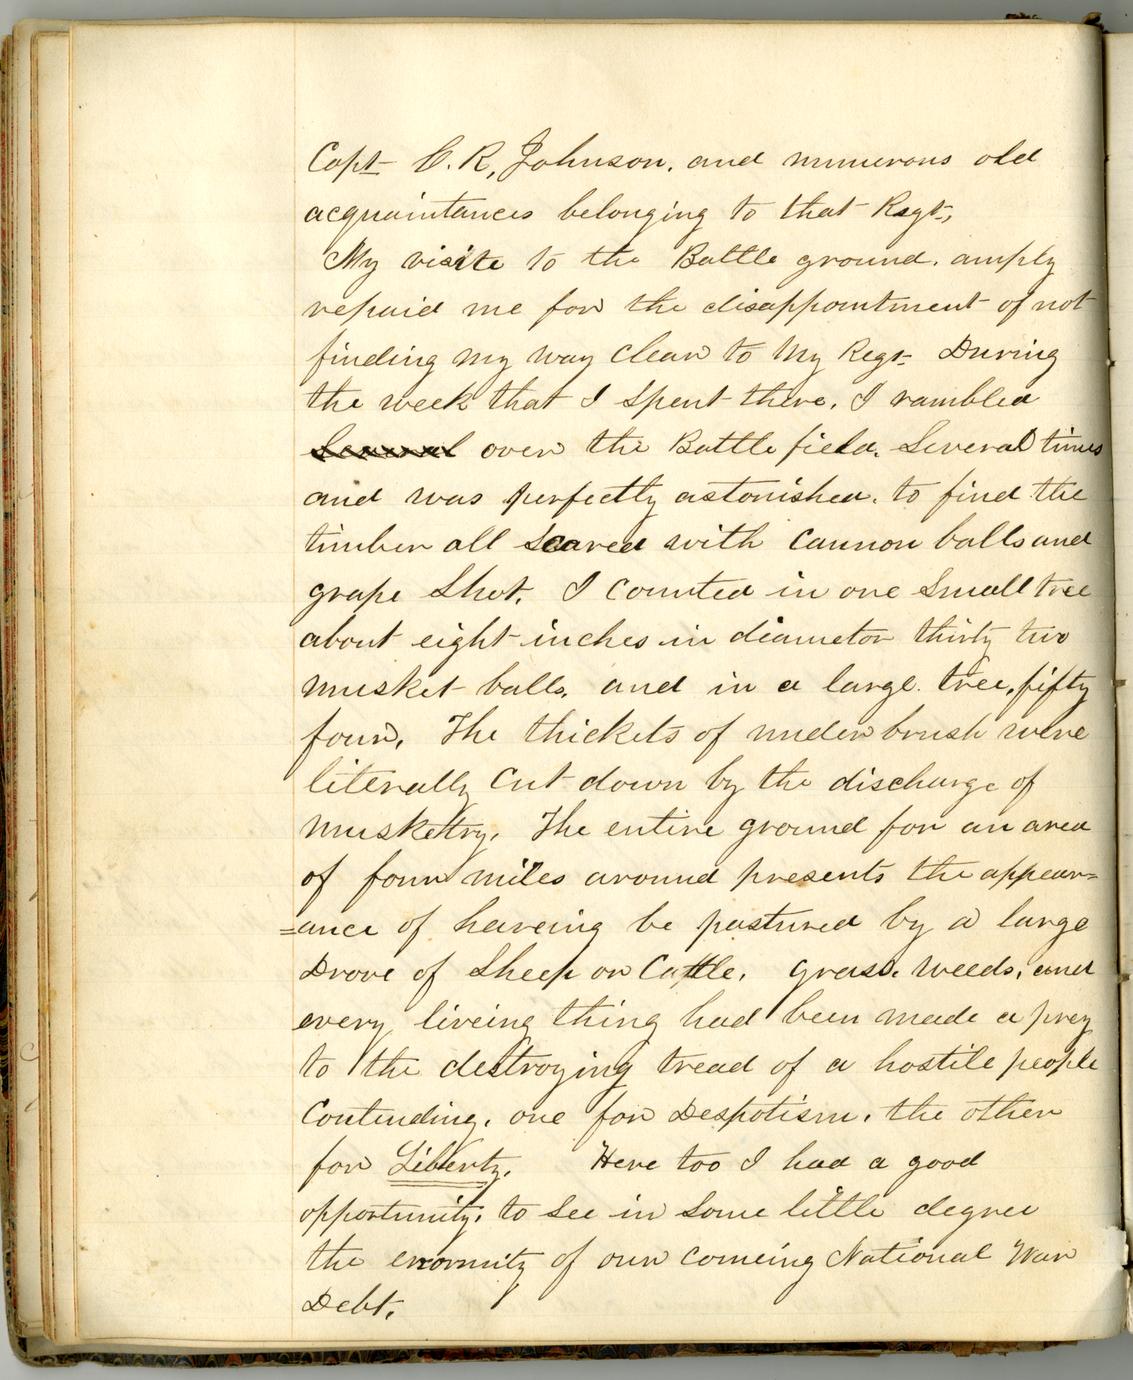 Capt C. R, Johnson, and numerous old
acquaintances belonging to that Regt,
My visite to the Battle ground. amply
repaid me for the disappointment of not
finding my way clear to My Regt- During
the week that I spent there, I rambled
Several over the Battle field. Several times
and was perfectly astonished. to find the
timber all scared with Cannon balls and
grape Shot. I Counted in one Small tree
about eight inches in diameter thirty two
musket balls, and in a large tree, fifty
four. The thickets of under brush were
literally Cut down by the discharge of
muskettry. The entire ground for an area
of four miles around presents the appear=
=ance of haveing be pastured by a large
Drove of Sheep or Cattle. Grass. weeds, and
every liveing thing had been made a prey
to the destroying tread of a hostile people
Contending, one for Despotism, the other
for Liberty. Here too I had a good
opportunity, to See in Some little degree
the enormity of our comeing National War
Debt.